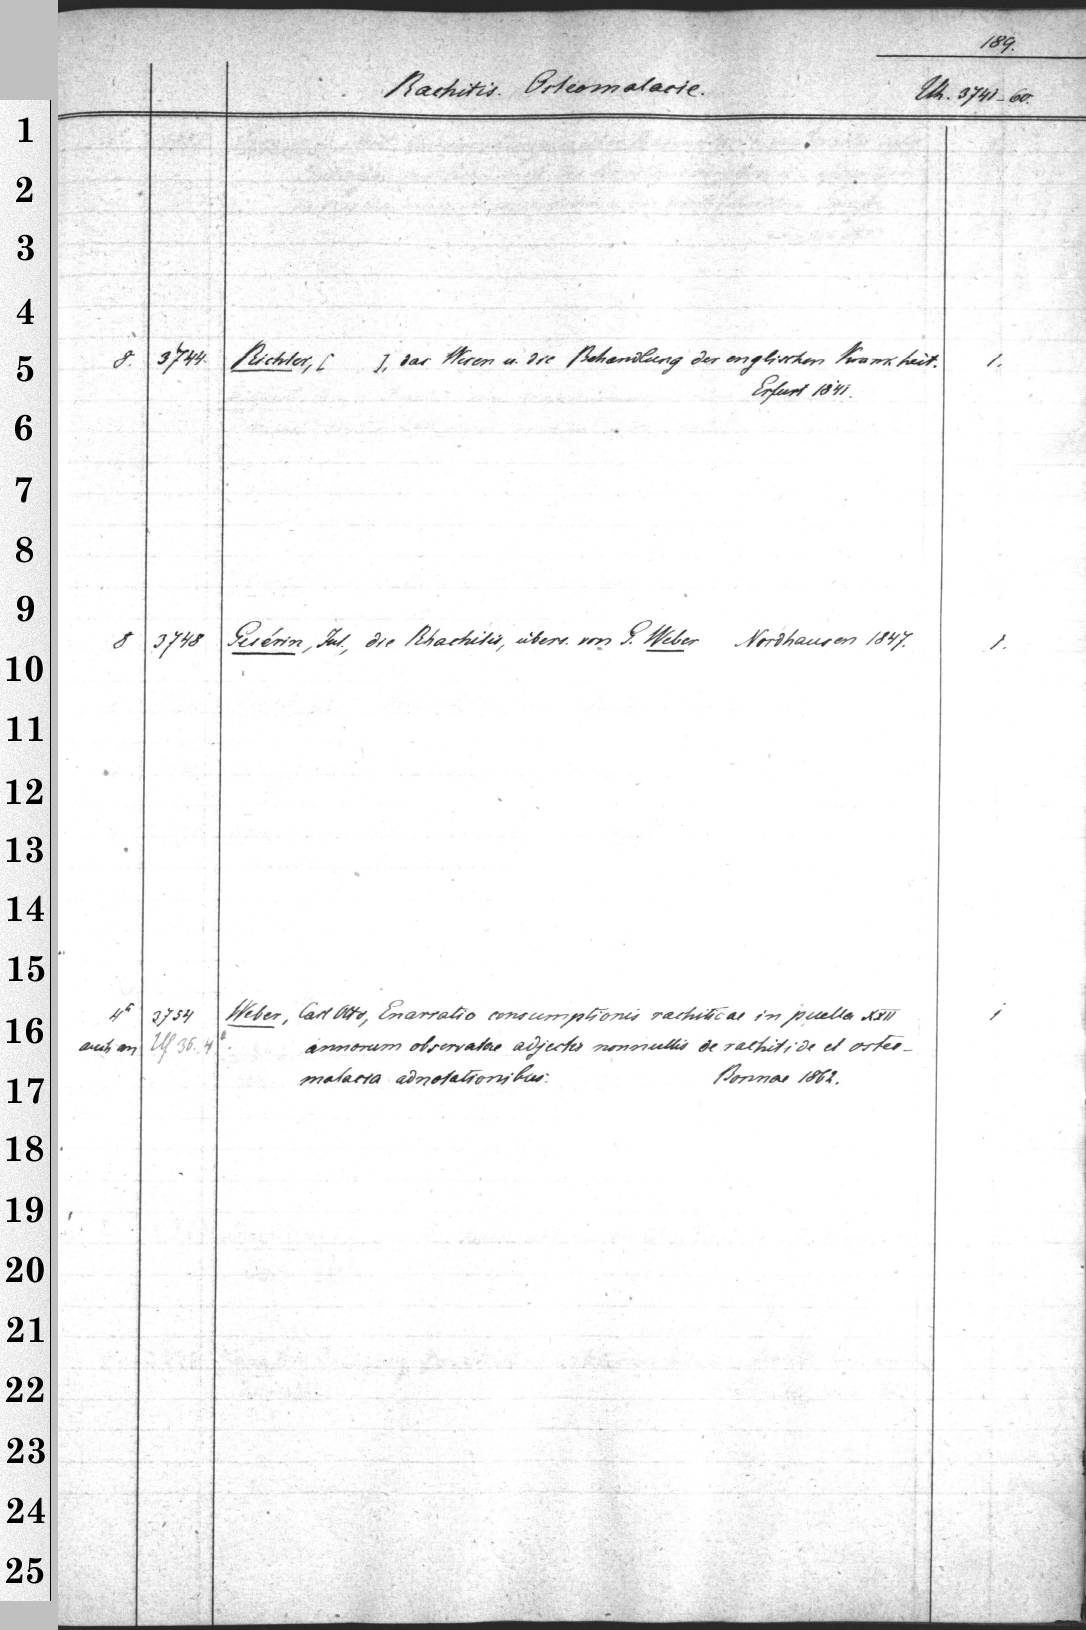 189.
Rachitis. Osteomalacie. Uh. 3741-60.
1
2
3
4
5 8. 3744. Richter, [ ], das Wesen u. die Behandlung der englischen Krankheit. 1.
Erfurt 1841.
6
7
8
9
8 3748 Guérin, Jul., die Rhachitis, übers. von G. Weber Nordhausen 1847. 1.
10
11
12
13
14
15
4° 3754 Weber, Carl Otto, Enarratio consumptionis rachiticae in puella XXII 1
16 auch an Uf 36. 4°. annorum observatae adjectis nonnullis de rachitide et osteo-
17 malacia adnotationibus. Bonnae 1862.
18
19
20
21
22
23
24
25